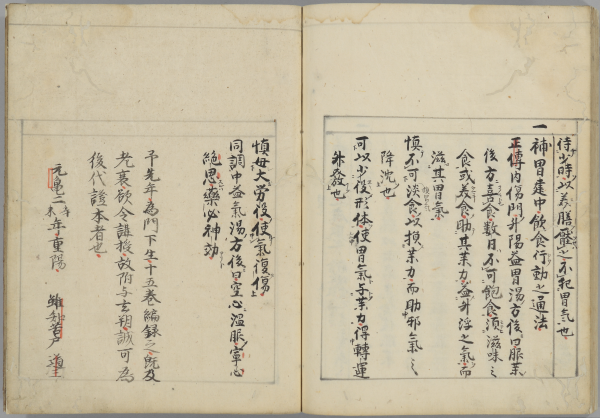 待少時以美膳壓之不犯胃気也
一補胃建中飲食行動之通法
正傳内傷門升陽益胃湯方後曰服薬
後方喜食数日不可飽食須滋味之
食或美食助其薬力益升浮之氣而
滋其胃氣
慎不可淡食以損薬力而助邪氣之
降沈也
可以少役形体使胃氣与薬力得轉運
升發也
慎毋大労役使氣復傷
同調中益氣湯方後曰空心温服寧心
絶思薬必神効
予先年為門下生十五巻編録之既及
老衰欲令誰授故附与玄朔誠可為
後代證本者也
元亀二年重陽
道三